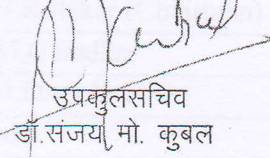 उपकुलसचिव
डॉ.संजय मो. कुबल